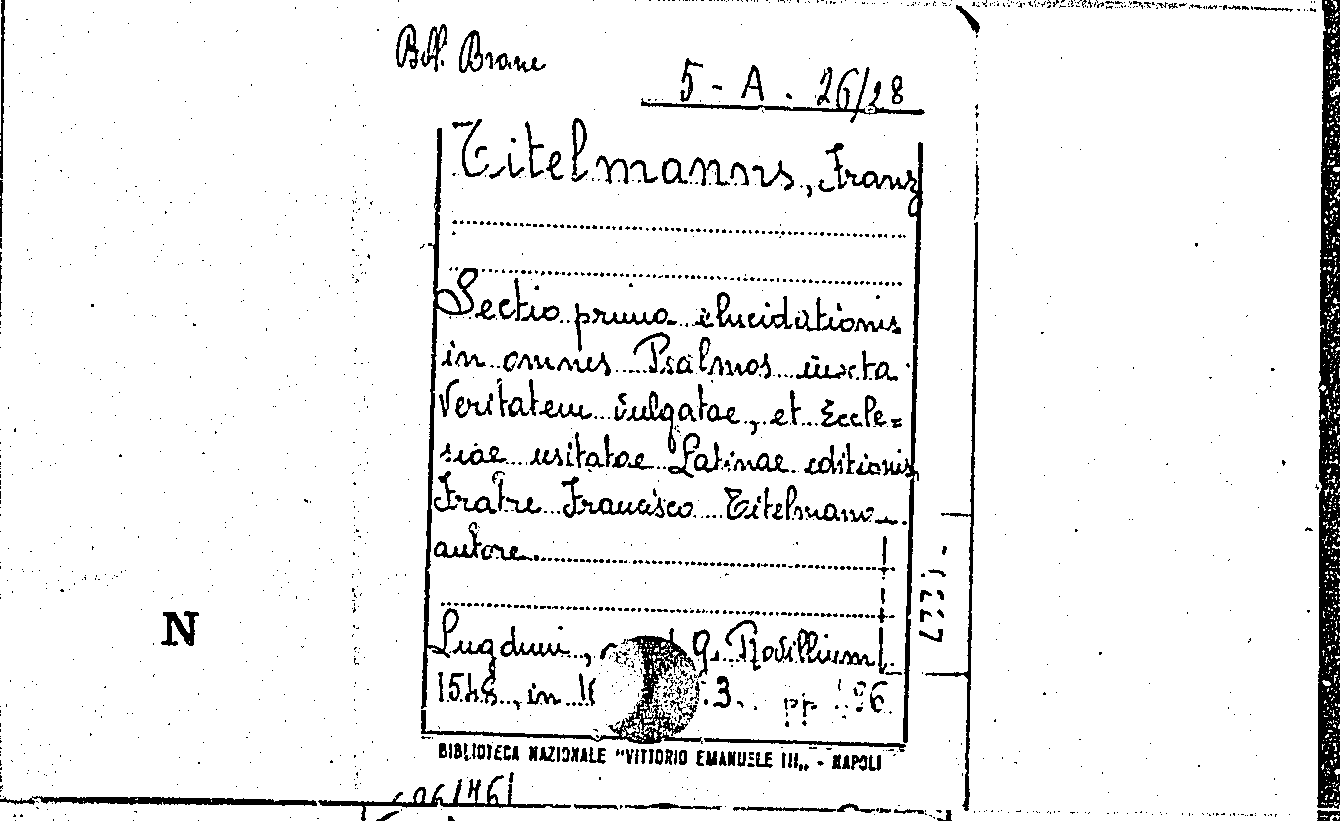 Bibl. Branc
5-A. 26/28
Titelmanns, Franz
Sectio prima elucidationis
in omnes Psalmos iuxta
veritatem vulgatae, et Eccle=
siae usitatae Latinae editionis,
Fratre Francisco Titelmano
autore.
Lugduni, G. Rovillium,
1548, in 3. pp
N
BIBLIOTECA NAZIONALE "VITTORIO EMANUELE III„ - NAPOLI